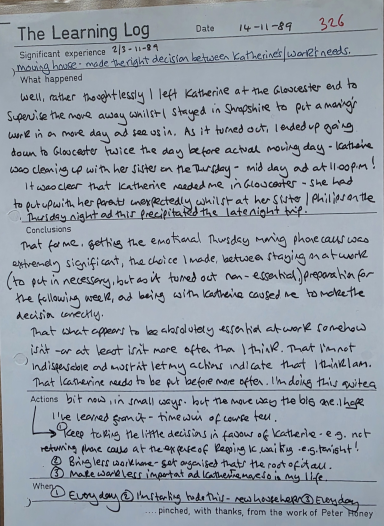 The Learning Log Date 14-11-89 326
Significant experience 2/3-11-89
moving house - made the right decision between Katherine's/work needs.
What happened
Well, rather thoughtlessly I left Katherine at the Gloucester end to
supervise the move away whilst I stayed in Shropshire to put a morning's
work in on move day and see us in. As it turned out, I ended up going
down to Gloucester twice the day before actual moving day - Katherine
was cleaning up with her sister on the Thursday - mid day and at 11.00pm!
It was clear that Katherine needed me in Gloucester - she had
to put up with her parents unexpectedly whilst at her sister / Philips on the
Thursday night and this precipitated the late night trip.
Conclusions
That for me, getting the emotional Thursday morning phone call was
extremely significant, the choice I made, between staying on at work
(to put in necessary, but as it turned out non-essential) preparation for
the following week, and being with Katherine caused me to make the
decision correctly.
That what appears to be absolutely essential at work somehow
isn't - or at least isn't more often than I think. That I'm not
indispensable and must not let my actions indicate that I think I am.
That Katherine needs to be put before more often. I'm doing this quite a
Actions bit now, in small ways - but the move was the big one. I hope
I've learned from it - time will of course tell.
① Keep taking the little decisions in favour of Katherine - e.g. not
returning phone calls at the expense of keeping K. waiting - e.g. tonight!
② Bring less work home - get organised that's the root of it all.
③ Make work less important and Katherine more so in my life.
When ① Everyday ② I'm starting to do this - new house helps ③ Everyday
....pinched, with thanks, from the work of Peter Honey